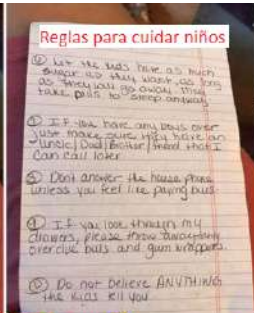 Reglas para cuidar niños
① Let the kids have as much
sugar as they want, as long
as they go away they
take pills to sleep anyway
② If you have any boys over
just make sure they have an
uncle/Dad/Brother/friend that I
can call later
③ Dont answer the house phone
unless you feel like paying bills
④ If you look through my
drawers, please throw away any
overdue bills and gum wrappers.
⑤ Do not believe ANYTHING
the kids tell you